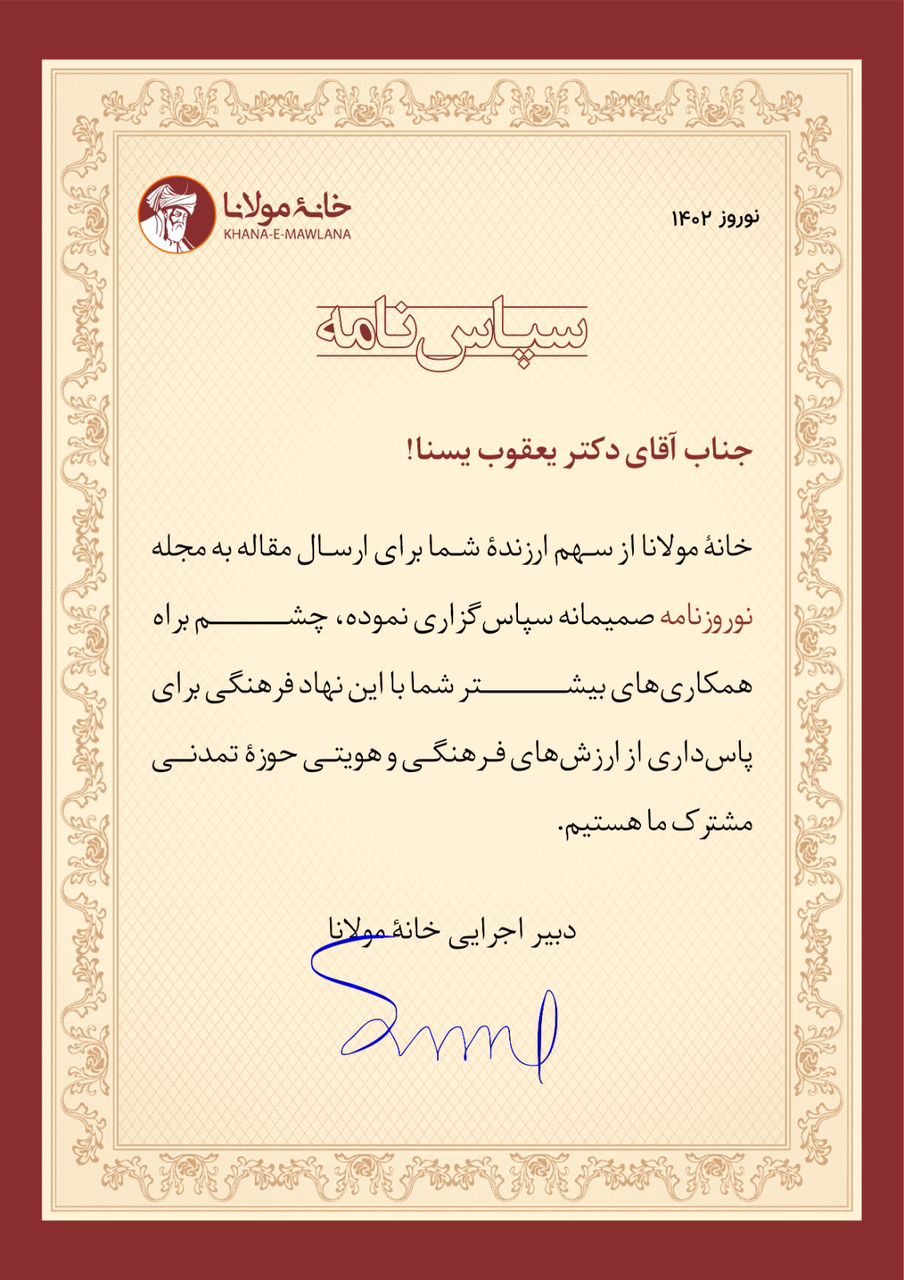 خانهٔ مولانا
KHANA-E-MAWLANA
نوروز ۱۴۰۲
سپاس‌نامه
جناب آقای دکتر یعقوب یسنا!
خانهٔ مولانا از سهم ارزندهٔ شما برای ارسال مقاله به مجله
نوروزنامه صمیمانه سپاس‌گزاری نموده، چشم براه
همکاری‌های بیشتر شما با این نهاد فرهنگی برای
پاس‌داری از ارزش‌های فرهنگی و هویتی حوزهٔ تمدنی
مشترک ما هستیم.
دبیر اجرایی خانهٔ مولانا